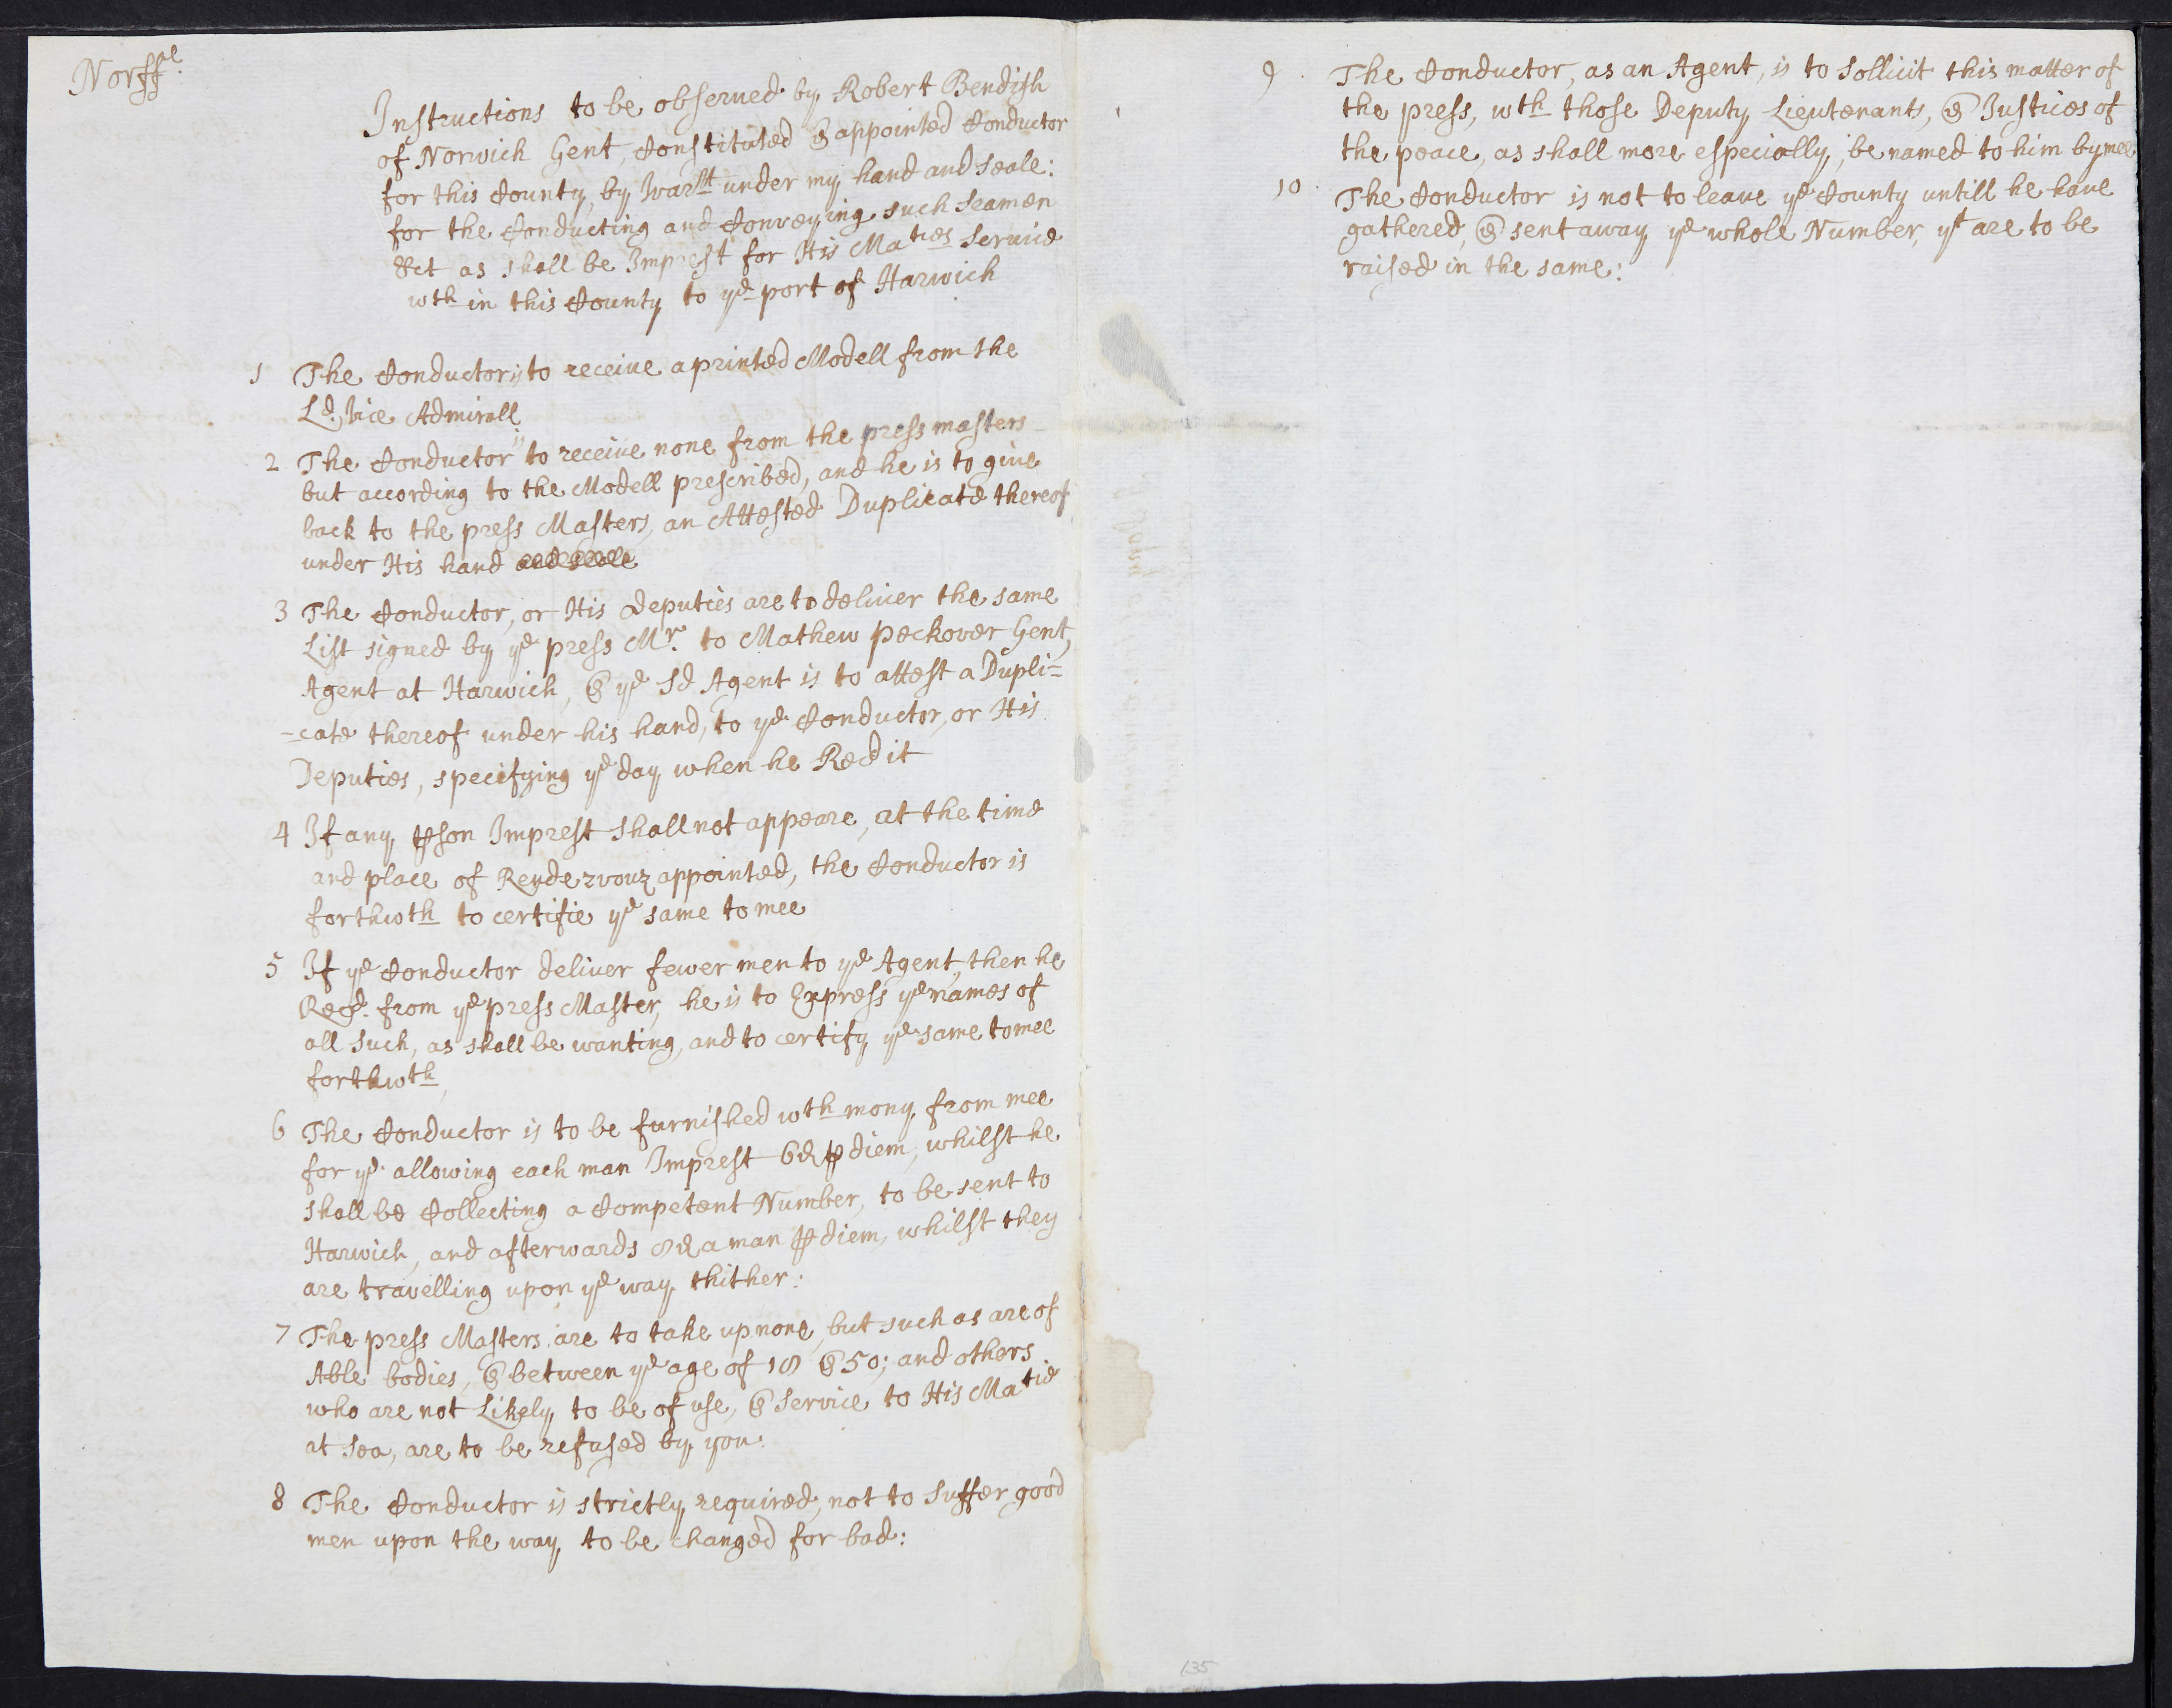 Norff^l:
Instructions to be obserued by Robert Bendish
of Norwich Gent, Constituted & appointed Conductor
for this County, by Warr^t under my hand and seale:
for the Conducting and Conveying such Seamen
&ct as shall be Imprest for His Ma^ties Service
w^th in this County to y^e port of Harwich
1 The Conductor is to receiue a printed Modell from the
L^d. Vice Admirall
2 The Conductor is to receiue none from the press masters
but according to the Modell prescribed, and he is to giue
back to the press Masters, an Attested Duplicate thereof
under His hand and seale
3 The Conductor, or His Deputies are to deliuer the same
List signed by y^e press M^r. to Mathew Peckover Gent,
Agent at Harwich, & y^e Sd Agent is to attest a Dupli=
=cate thereof under his hand, to y^e Conductor, or His
Deputies, specifying y^e day when he Recd it
4 If any pson Imprest shall not appeare, at the time
and place of Rendezvouz appointed, the Conductor is
forthw^th to certifie y^e same to mee
5 If y^e Conductor deliuer fewer men to y^e Agent, then he
Recd. from y^e press Master, he is to Express y^e names of
all such, as shall be wanting, and to certify y^e same to mee
forthw^th,
6 The Conductor is to be furnished w^th mony from mee
for y^e allowing each man Imprest 6d p diem, whilst he
shall be Collecting a Competent Number, to be sent to
Harwich, and afterwards 8d a man p diem, whilst they
are travelling upon y^e way thither:
7 The press Masters are to take up none, but such as are of
Able bodies, & between y^e age of 18 & 50; and others
who are not Likely to be of use, & Service to His Ma^tie
at Sea, are to be refused by you:
8 The Conductor is strictly required, not to suffer good
men upon the way to be changed for bad:
9 The Conductor, as an Agent, is to sollicit this matter of
the press, w^th those Deputy Lieutenants, & Justices of
the peace, as shall more especially be named to him by mee
10 The Conductor is not to leaue y^e County untill he haue
gathered, & sent away y^e whole Number, y^t are to be
raised in the same:
135